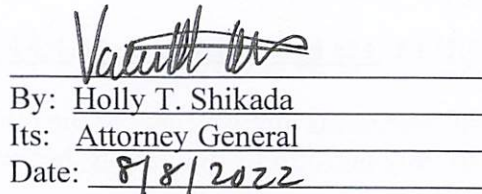 By: Holly T. Shikada
Its: Attorney General
Date: 8/8/2022